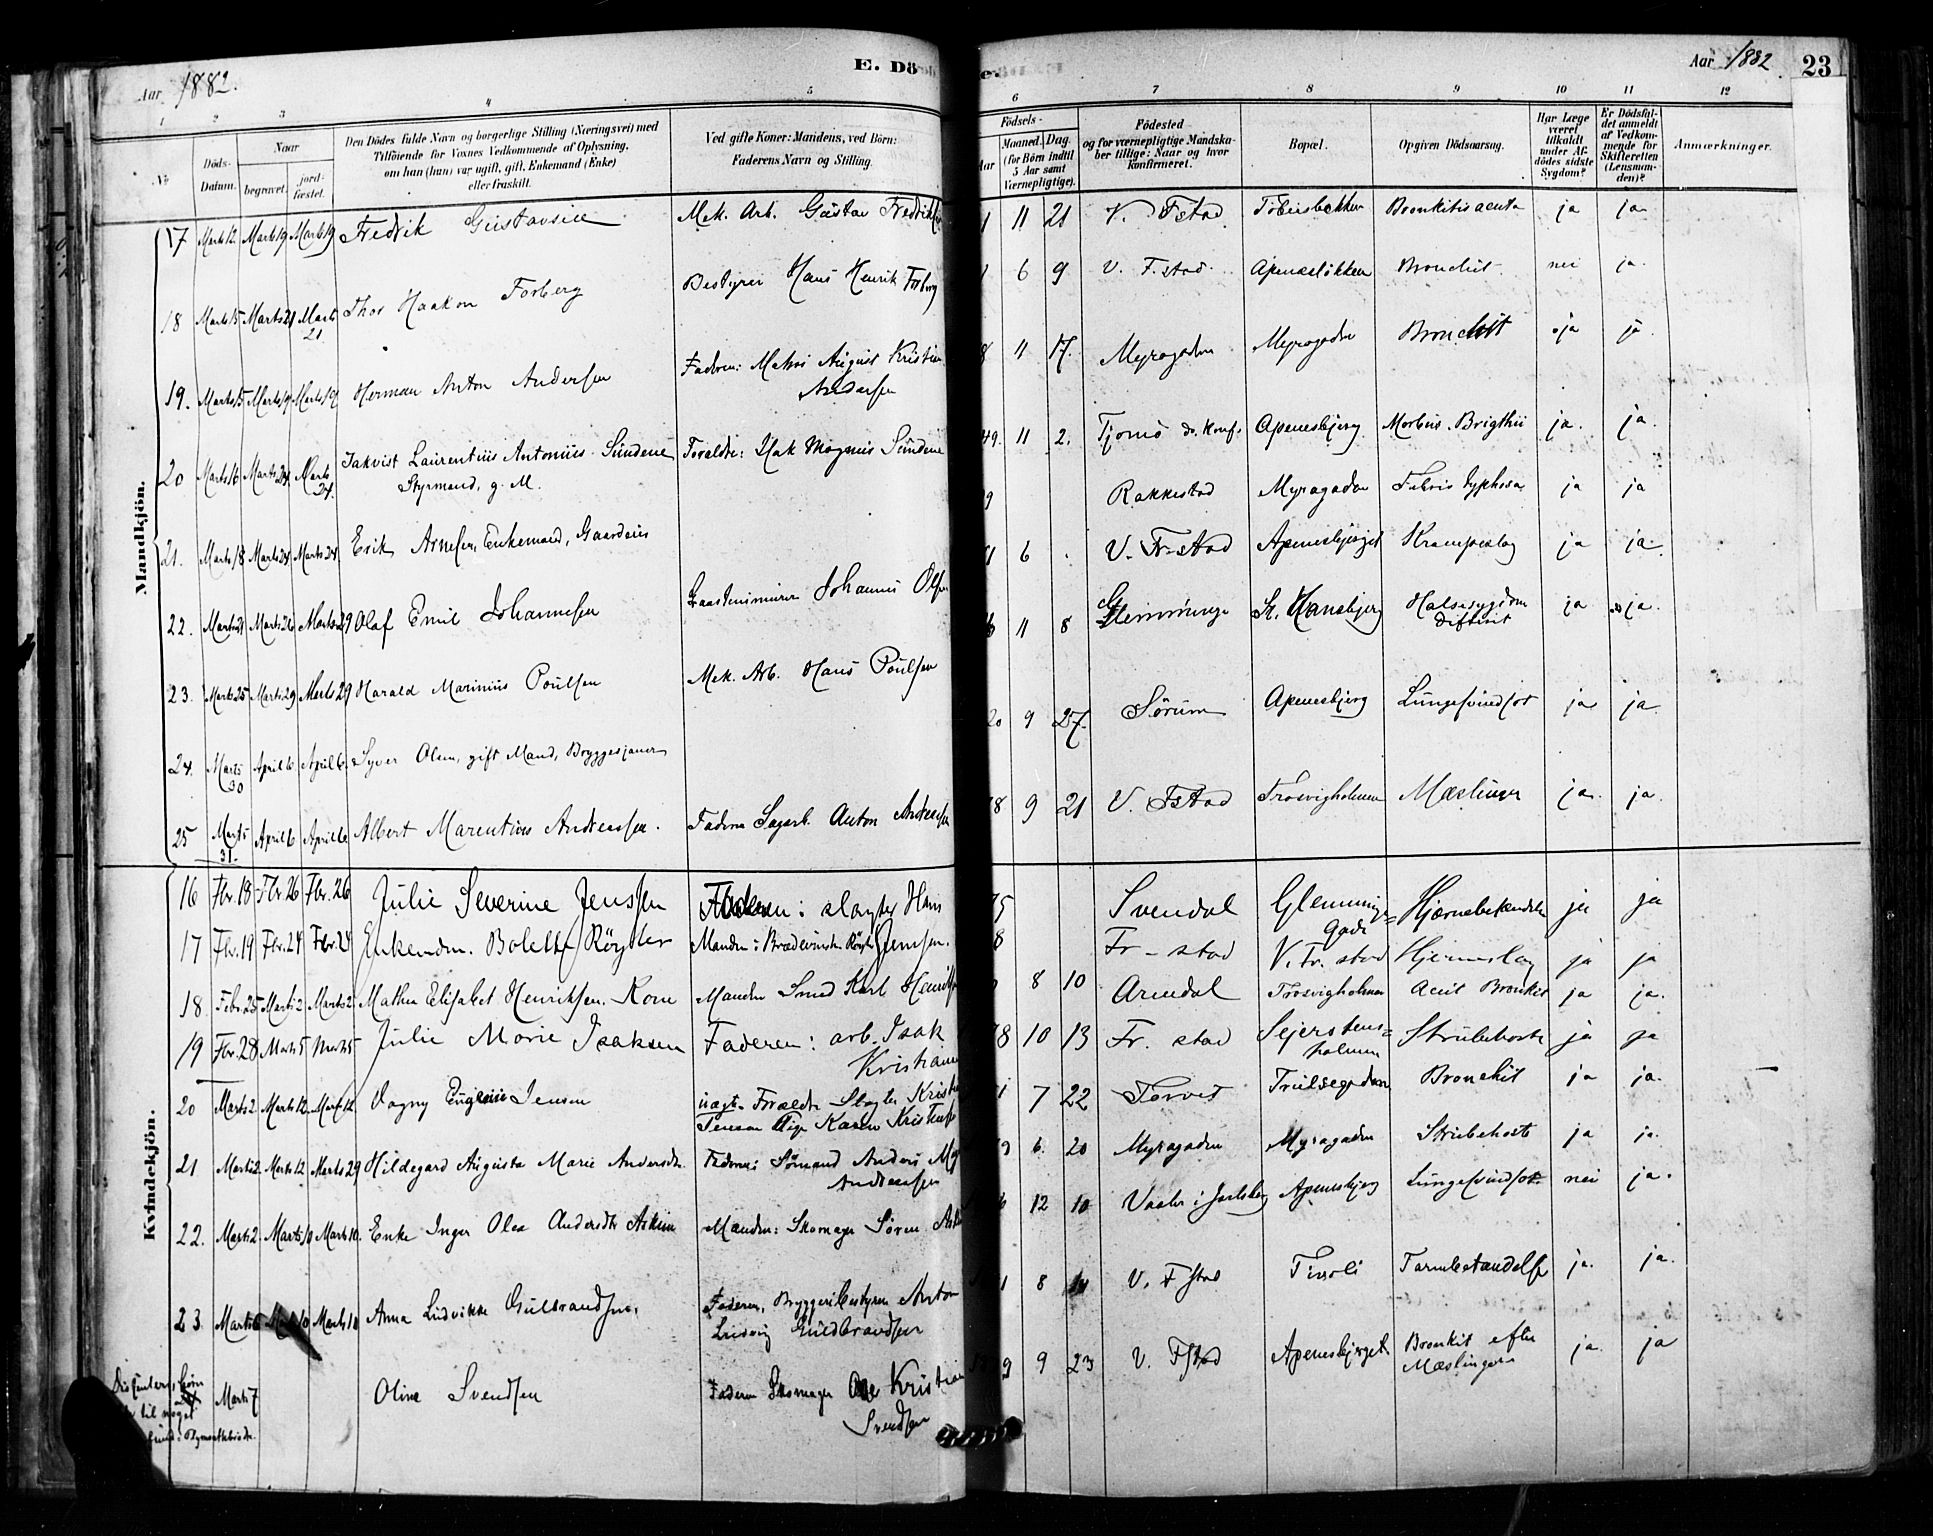 Aar 1882.
E. Dö
e.
Aar 1882
23
1 2 3 4 5
6 7 8 9 10 11 12
No
Döds-
Datum.
Naar
begravet.
jord-
fæstet.
Den Dödes fulde Navn og borgerlige Stilling (Næringsvei) med
Tilföiende for Voxnes Vedkommende af Oplysning,
om han (hun) var ugift, gift, Enkemand (Enke)
eller fraskilt.
Ved gifte Koner: Mandens, ved Börn:
Faderens Navn og Stilling.
Födsels-
Aar
Maaned.
Dag.
(for Börn indtil
5 Aar samt
Værnepligtige).
Födested
og for værnepligtige Mandska-
ber tillige: Naar og hvor
konfirmeret.
Bopæl.
Opgiven Dödsaarsag.
Har Læge
været
tilkaldt
under Af-
dödes sidste
Sygdom?
Er Dödsfal-
det anmeldt
af Vedkom-
mende for
Skifteretten
(Lensman-
den)?
Anmærkninger.
Mandkjön.
17 Marts 12. Marts 19 Marts 19 Fredrik Gustavsen Mek. Arb. Gustav Fredriks 1 11 21 V. Fstad Bronkitis acuta ja ja
18 Marts 15 Marts 21 Marts 21 Thor Haakon Forberg Bestyrer Hans Henrik Forberg 1 6 9 V. F.stad. Apenesløkken Bronchit. nei ja.
19. Marts 15 Marts 19 Marts 19 Herman Anton Andersen Faderen: August Kristian
Andersen 8 11 17. Myragaden Myragaden Bronchit ja ja
20 Marts 16 Marts 24. Marts 24. Laurentius Antonius Sundene
Styrmand, g. M. Forældre: Isak Magnus Sundene 49. 11 2. Tjømø do. konf. Apenesbjerg Morbus Brigthii ja. ja.
21. Marts 18 Marts 24 Marts 24. Erik Arnesen, Enkemand, 9 Rakkestad Myragaden Febris typhosa ja ja
22. Marts 21 Marts 26 Marts 29 Olaf Emil Johannesen Johannes Olsen 81 6 V. Fr-stad Apenesbjerget Krampeslag ja ja.
23. Marts 25 Marts 29 Marts 29 Harald Marinius Poulsen Mek. Arb. Hans Poulsen 11 8 Glemminge St. Hansbjerg Halssygdom
Diftirit ja ja.
24. Marts 30 April 6 April 6. Syver Olsen, gift Mand, Bryggesjauer 20 9 27. Sørum Apenesbjerg Lungesvindsot ja ja
25 Marts 31. April 6 April 6 Albert Marentius Andreassen. Faderen Sagarb. Anton Andreassen 78 9 21 V. Fstad Trosvigholmen Mæslinger ja. ja.
Kvindekjön.
16 Fbr. 18 Fbr. 26 Fbr. 26 Julie Severine Jenssen Faderen: slagter Hans
Jenssen. 75 Svendal Glemminge=
Gade Hjernebetændelse ja ja
17 Fbr. 19 Fbr. 24 Fbr. 24 Enkemdm. Bolette Røgler Manden: Røgler 8 Fr-stad V. Fr. stad Hjerneslag ja ja
18. Febr. 25 Marts 2 Marts 2 Mathea Elisabet Henriksen, Kone Manden Smed Karl Henriksen 8 10 Arendal Trosvigholmen Acut Bronkit ja ja.
19 Fbr. 28 Marts 5 Marts 5 Julie Marie Isaksen Faderen: arb. Isak
Kristiansen 78 10 13 Fr. stad Sejerstens=
holmen Strubehoste ja ja
20 Marts 2. Marts 12. Marts 12. Vagny Eugenie Jensen uægt. Forældre Slagter Kristian
Jensen Pige Karen Kristians 81 7 22 Torvet Trulsegaden Bronchit ja ja.
21 Marts 2. Marts 12 Marts 29 Hildegard Augusta Marie Andersdtr. Faderen: Sømand Anders
Andreassen 79 6. 20 Myragaden Myragaden Strubehoste ja ja.
22. Marts 2. Marts 10 Marts 10. Enke Inger Olea Andersdtr Askim Manden: Skomager Søren 12 10 Vaaler i Jarlsberg Apenesbjerg Lungesvindsot nei ja.
23. Marts 6 Marts 10 Marts 10 Anna Ludvikke Gulbrandsen. Faderen, Bryggeribestyrer Anton
Ludvig Guldbrandsen 1 8 V. Fstad Tivoli Tarmbetændelse ja. ja.
Dissenters børn
til noget
Marts 7 Oline Svendsen Faderen Skomager Ole Kristian
Svendsen 9 9 23 V. Fstad Apenesbjerget Bronkit efter
Mæslinger ja. ja